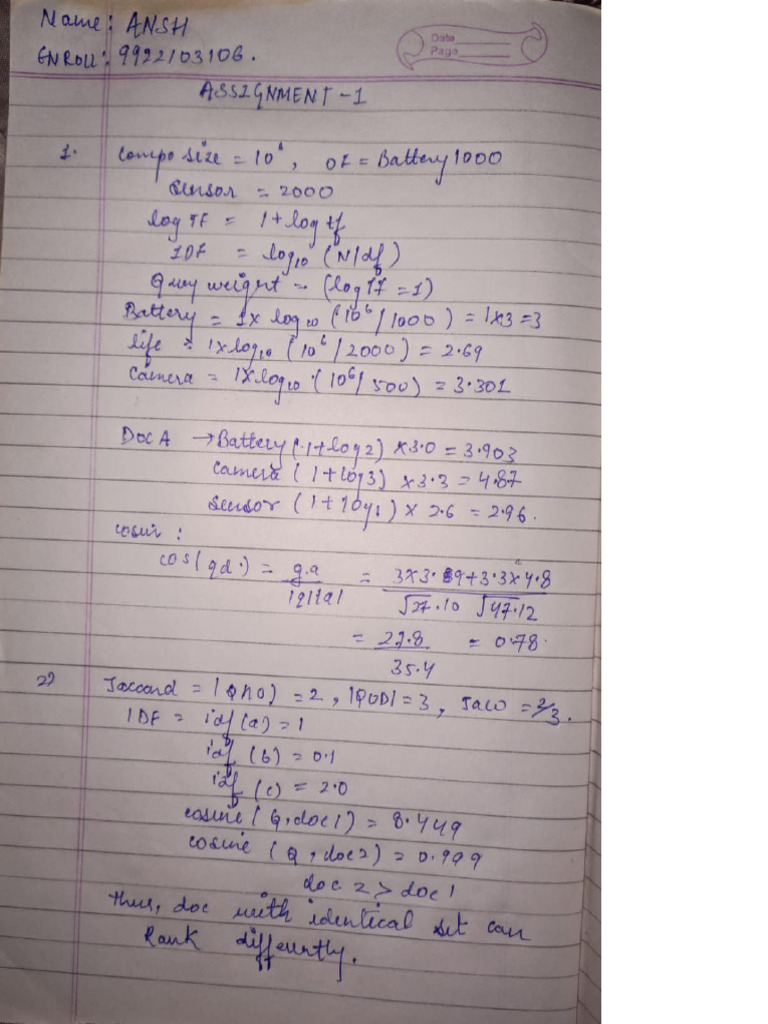 Name: ANSH
Date
Page
ENROLL: 9922103106.
ASSIGNMENT-1
1. Compo size = 10⁶, DF = Battery 1000
Sensor = 2000
log TF = 1 + log tf
IDF = log₁₀ (N/df)
Query weight - (log TF = 1)
Battery = 1x log₁₀ (10⁶/1000) = 1x3 = 3
life = 1xlog₁₀ (10⁶/2000) = 2.69
Camera = 1xlog₁₀ (10⁶/500) = 3.301
Doc A → Battery (1+log2) x3.0 = 3.903
Camera (1+log3) x3.3 = 4.87
Sensor (1+log1) x 2.6 = 2.96.
cosin:
cos(qd.) = q.a = 3x3.89+3.3x4.8
|q||a| √27.10 √47.12
= 27.8 = 0.78
35.4
2) Jaccard = |Q∩D| = 2, |QUD| = 3, Jaco = 2/3.
IDF = idf(a) = 1
idf (b) = 0.1
idf (c) = 2.0
cosine (Q,doc1) = 8.449
cosine (Q, doc2) = 0.999
doc 2 > doc 1
thus, doc with identical set can
Rank differently.